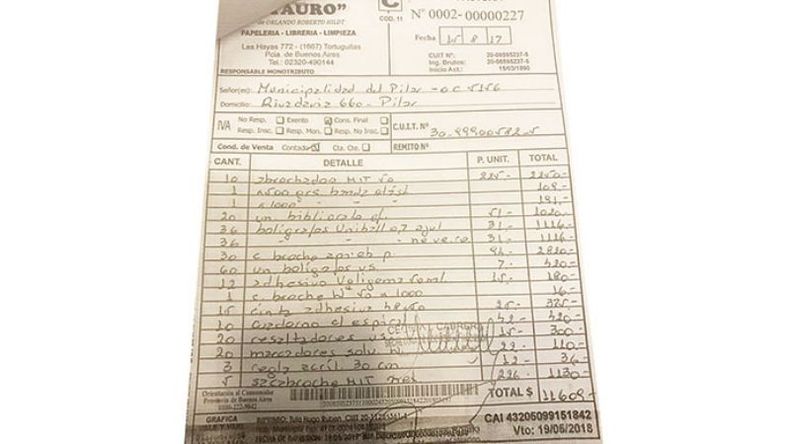 TAURO"
de ORLANDO ROBERTO HILDT
PAPELERIA - LIBRERIA - LIMPIEZA
Las Hayas 772 - (1667) Tortuguitas
Pcia. de Buenos Aires
Tel.: 02320-490144
RESPONSABLE MONOTRIBUTO
C
COD. 11
N° 0002- 00000227
Fecha 15 8 17
CUIT N°: 20-08595237-5
Ing. Brutos: 20-08595237-5
Inicio Act.:
Señor(es): Municipalidad del Pilar - OC 5156
Domicilio: Rivadavia 660 - Pilar
IVA No Resp. Exento Cons. Final
Resp. Insc. Resp. Mon. No Resp. Insc.
C.U.I.T. N° 30-99900582-5
Cond. de Venta Contado Cta. Cte. REMITO N°
CANT. DETALLE P. UNIT. TOTAL
10 abrochadoa MIT 50 225- 2250-
1 x500 grs. banda elást 109-
1 x1000 " " 191-
20 un bibliorato of. 51- 1020-
36 bolígrafos Uniball 0,7 azul 31- 1116-
36 " " " negro 31- 1116-
30 c broche aprieb p. 94- 2820-
60 un bolígrafos vs. 7- 420-
12 adhesivo Voligoma 50ml 15- 180-
1 c. broche Nº 50 x 1000 16-
15 cinta adhesiva 48x50 25- 375-
10 cuaderno c/ espiral 42- 420-
20 resaltadores vs 15- 300-
20 marcadores solv 22- 110-
3 regla acril. 30 cm 12- 36-
5 sacabroche MIT 226- 1130-
Orientación al Consumidor
Provincia de Buenos Aires
0800-222-9042
TOTAL $ 11609-
GRAFICA
CAI 43205099151842
Vto: 19/05/2018